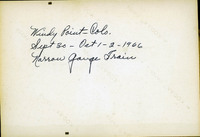 Windy Point - Colo.
Sept 30 - Oct 1-2-1906
Narrow Gauge Train